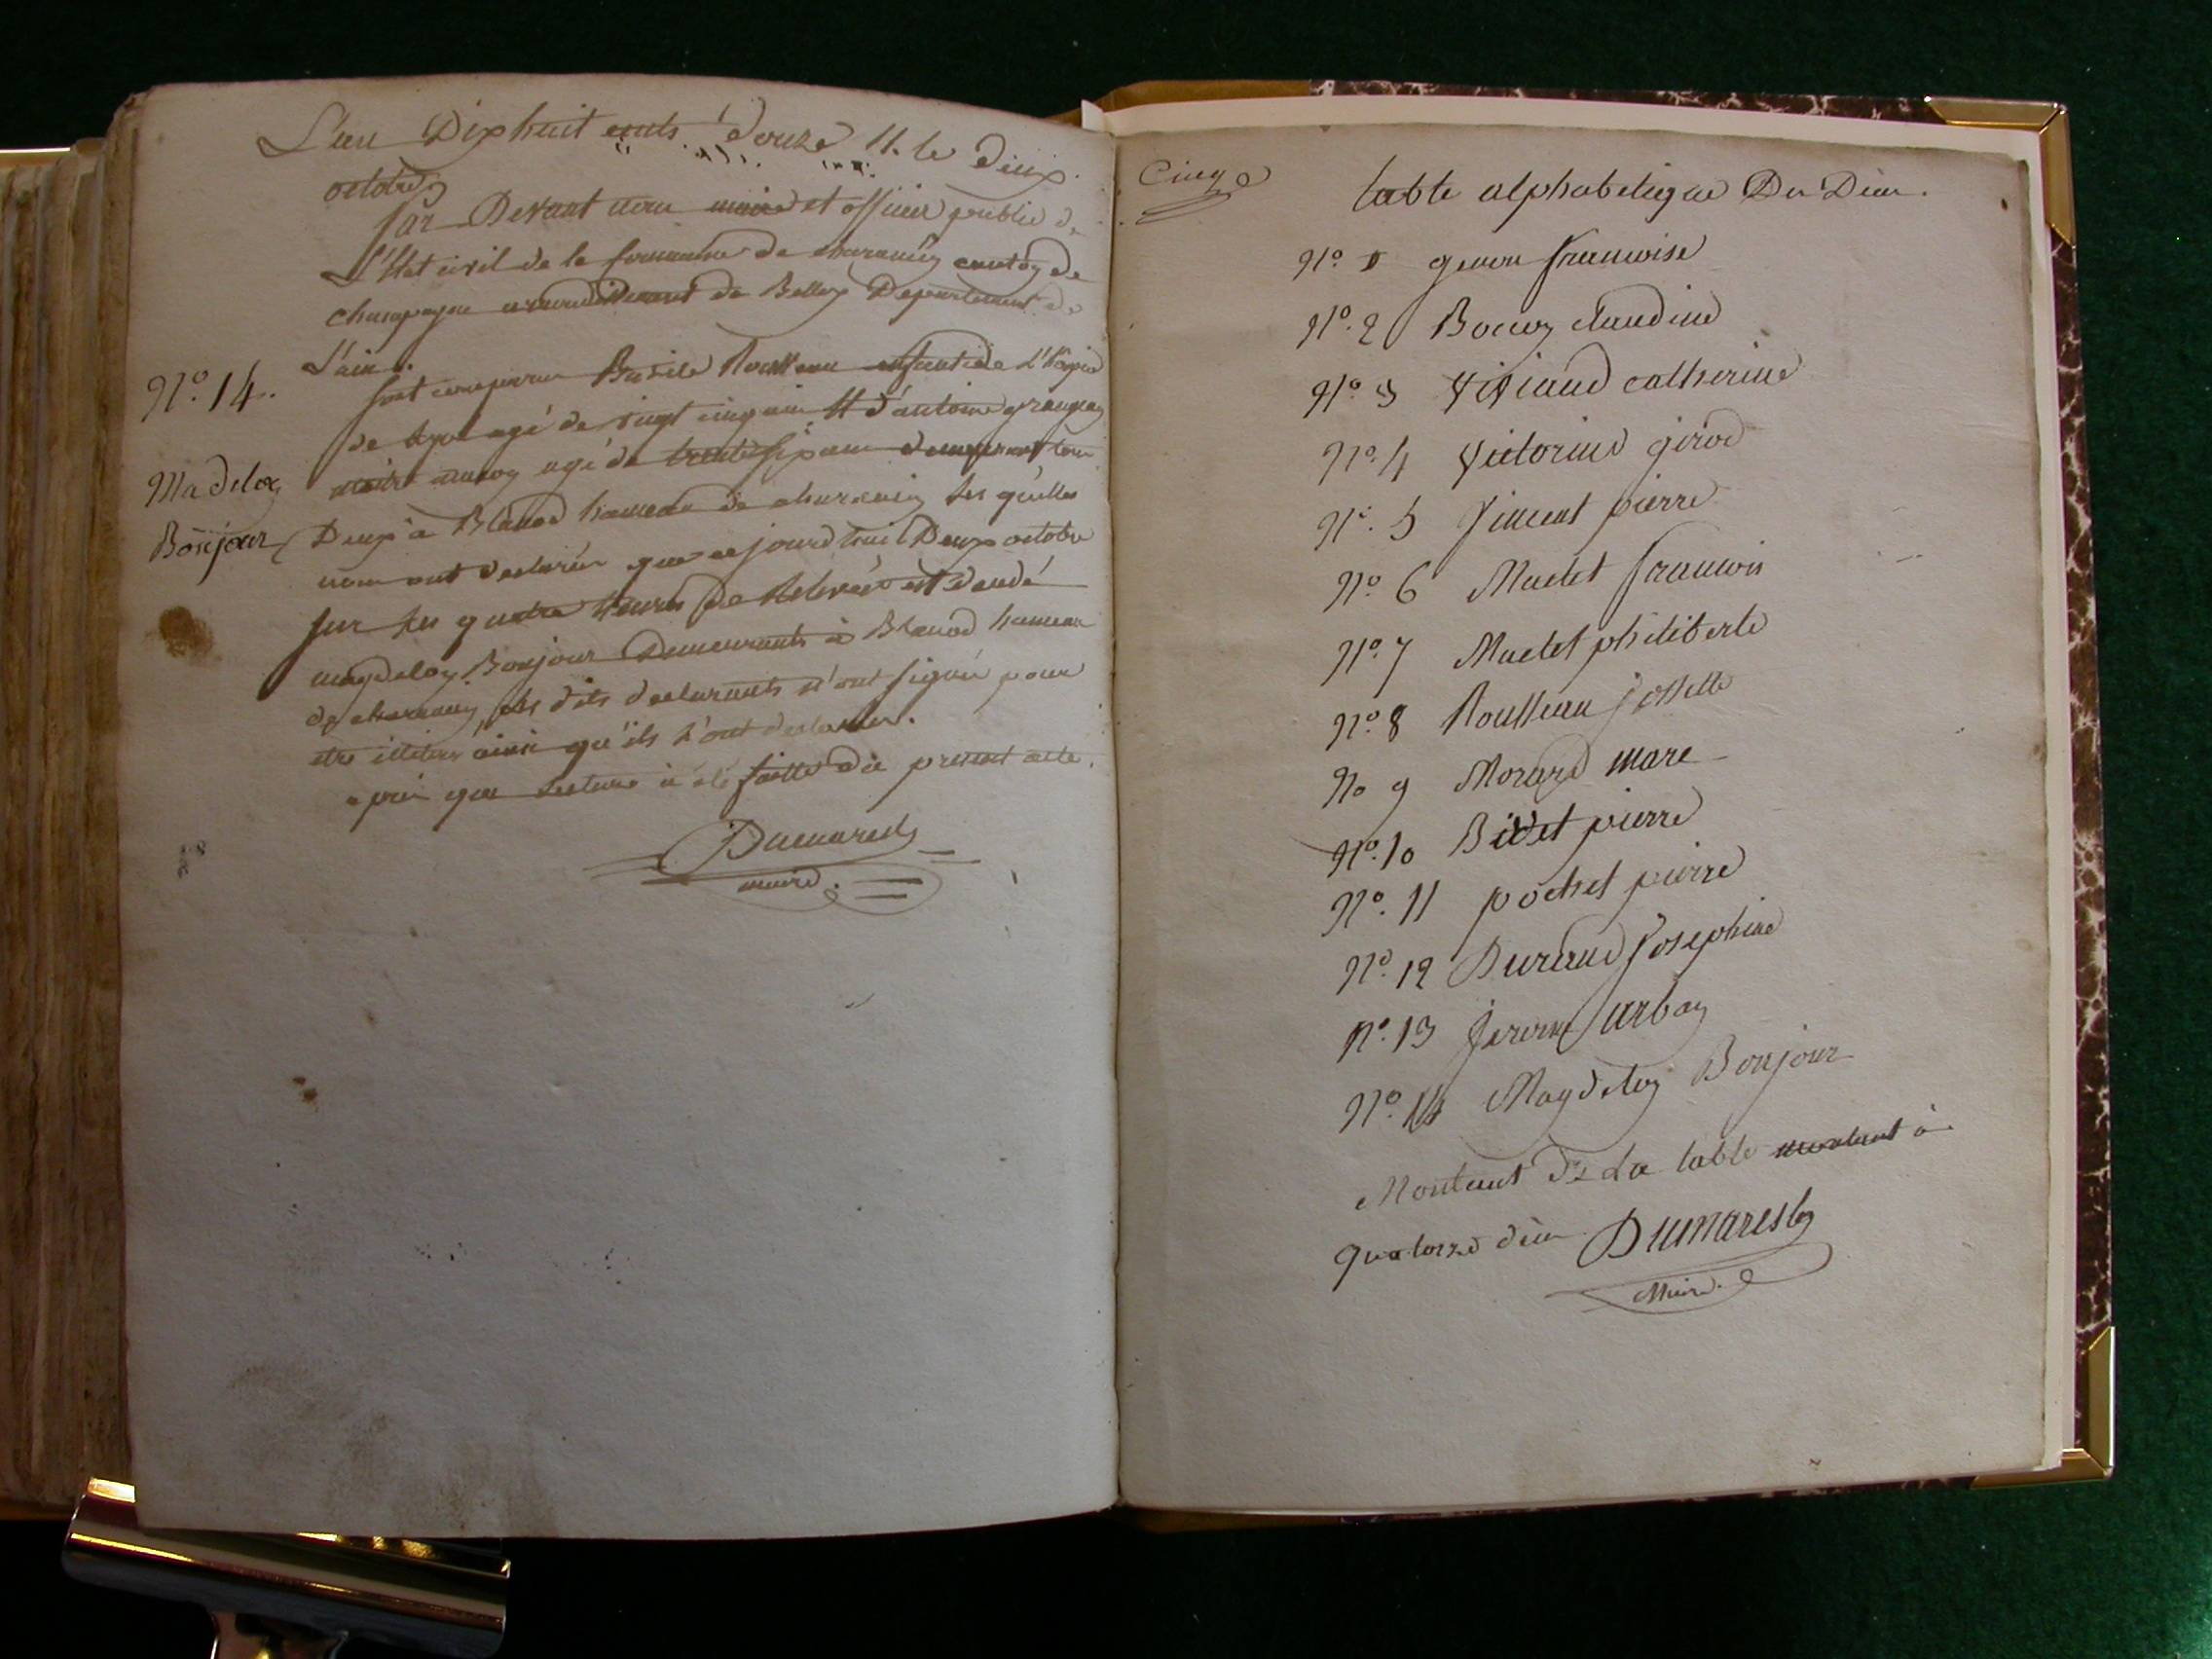 L'an Dix huit cents douze Et le deux
octobre
par Devant nous maire et officier public de
L'Etat civil de la Commune de charancin canton de
champagne arrondissement de Belley Departement de
L'ain.
N.º 14.
Madelon
Bonjour
sont comparus Basile Rousseau enfant de L'hopice
de agé de vingt cinq ans Et d'antoine
agé de trente six ans demeurant tous
Deux à Blanod hameau de charancin Les quelles
nous ont declarés que ce jourd'hui Deux octobre
sur les quatre heures de Relevée est décédé
magdelon Bonjour Demeurants à Blanod hameau
de charancin, les dits declarants n'ont signés pour
etre illiteres ainsi qu'ils l'ont declarés.
après que lecture à été faitte du present acte.
Dumarest
maire.
Cinq
table alphabetique Du Dèces.
Nº. 1 genou francoise
Nº. 2 Bocuz claudine
Nº 3 Viviand catherine
Nº. 4 Victorine girod
Nº. 5 Vincent pierre
Nº 6 Muclet francois
Nº. 7 Muclet philiberte
Nº. 8 Rousseau josette
No 9 Morard mare
Nº. 10 Bidet pierre
Nº. 11 pochet pierre
Nº. 12 Durand Josephine
Nº. 13 jerome urbain
Nº. 14 Magdelon Bonjour
Montant De La table montant à
quatorze dèces. Dumarest
Maire.